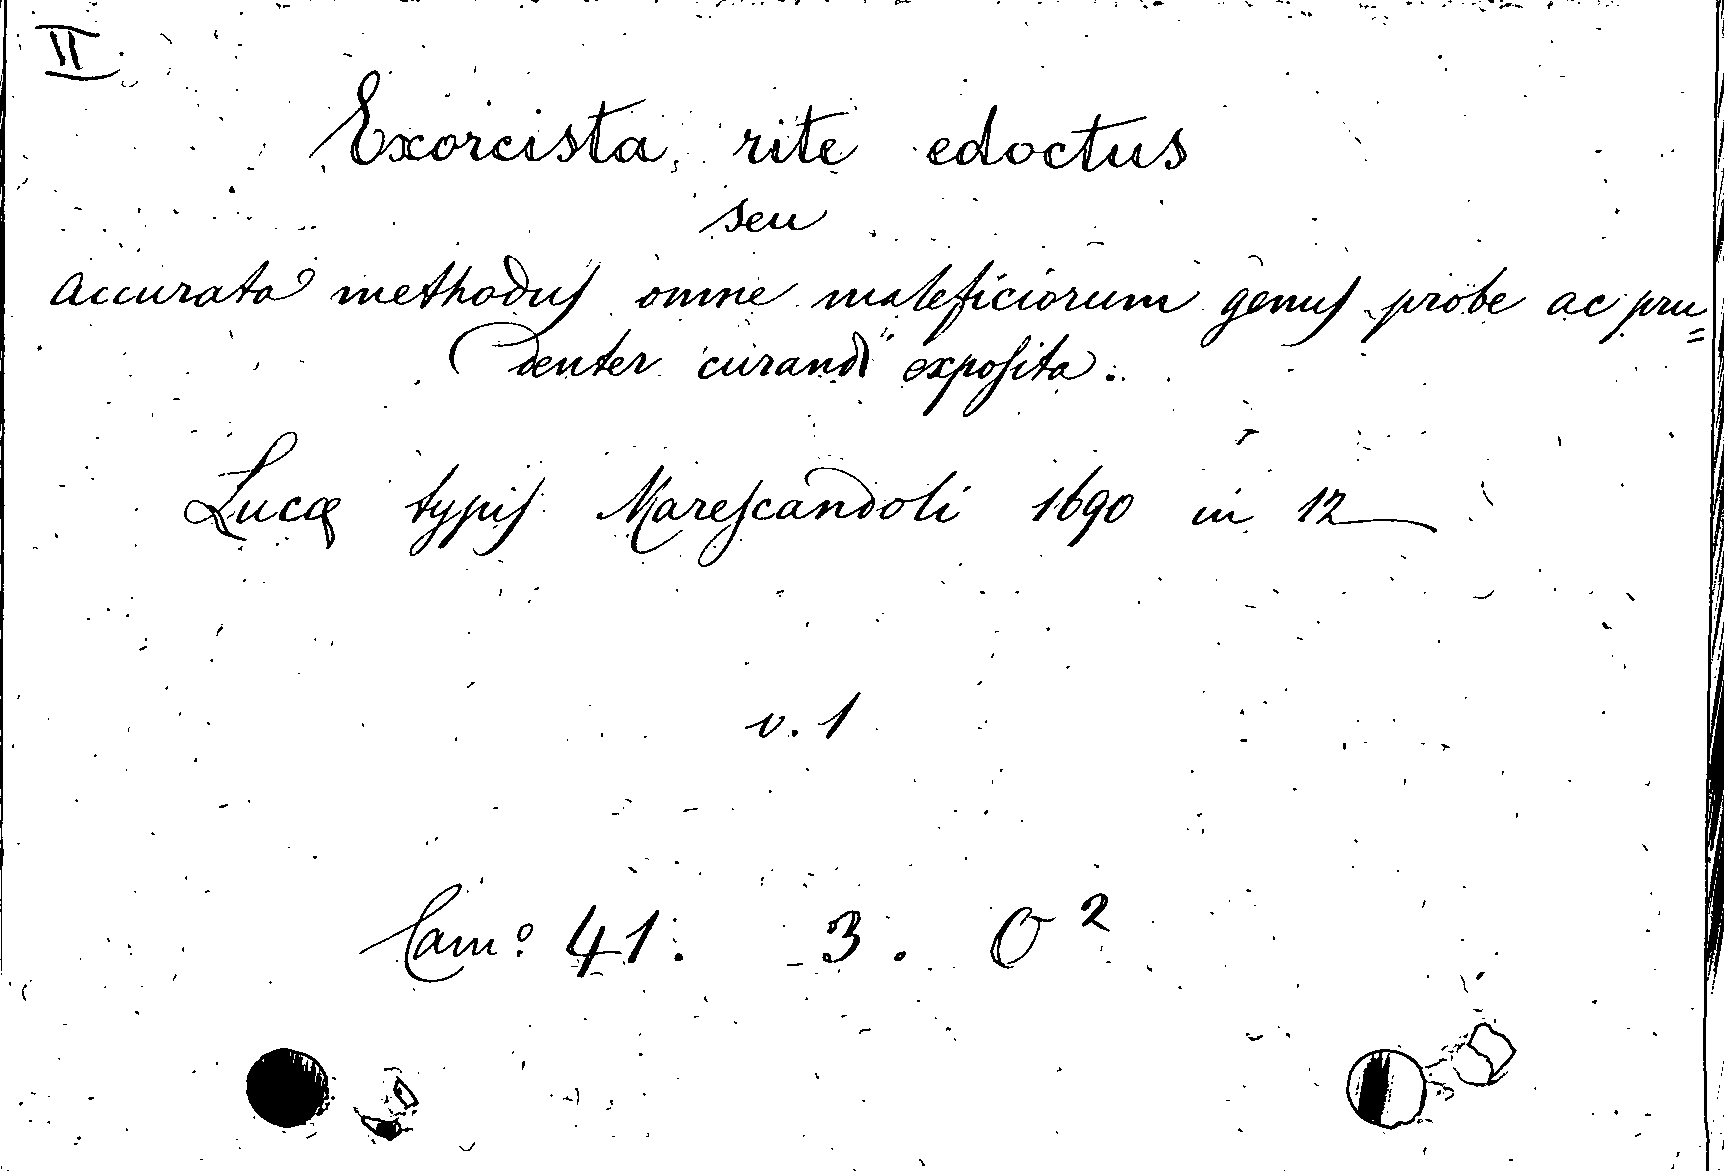 II
Exorcista rite edoctus
seu
accurata methodus omne maleficiorum genus probe ac pru=
denter curandi exposita.
Lucæ typis Marescandoli 1690 in 12
v. 1
Cam.º 41. 3. O 2